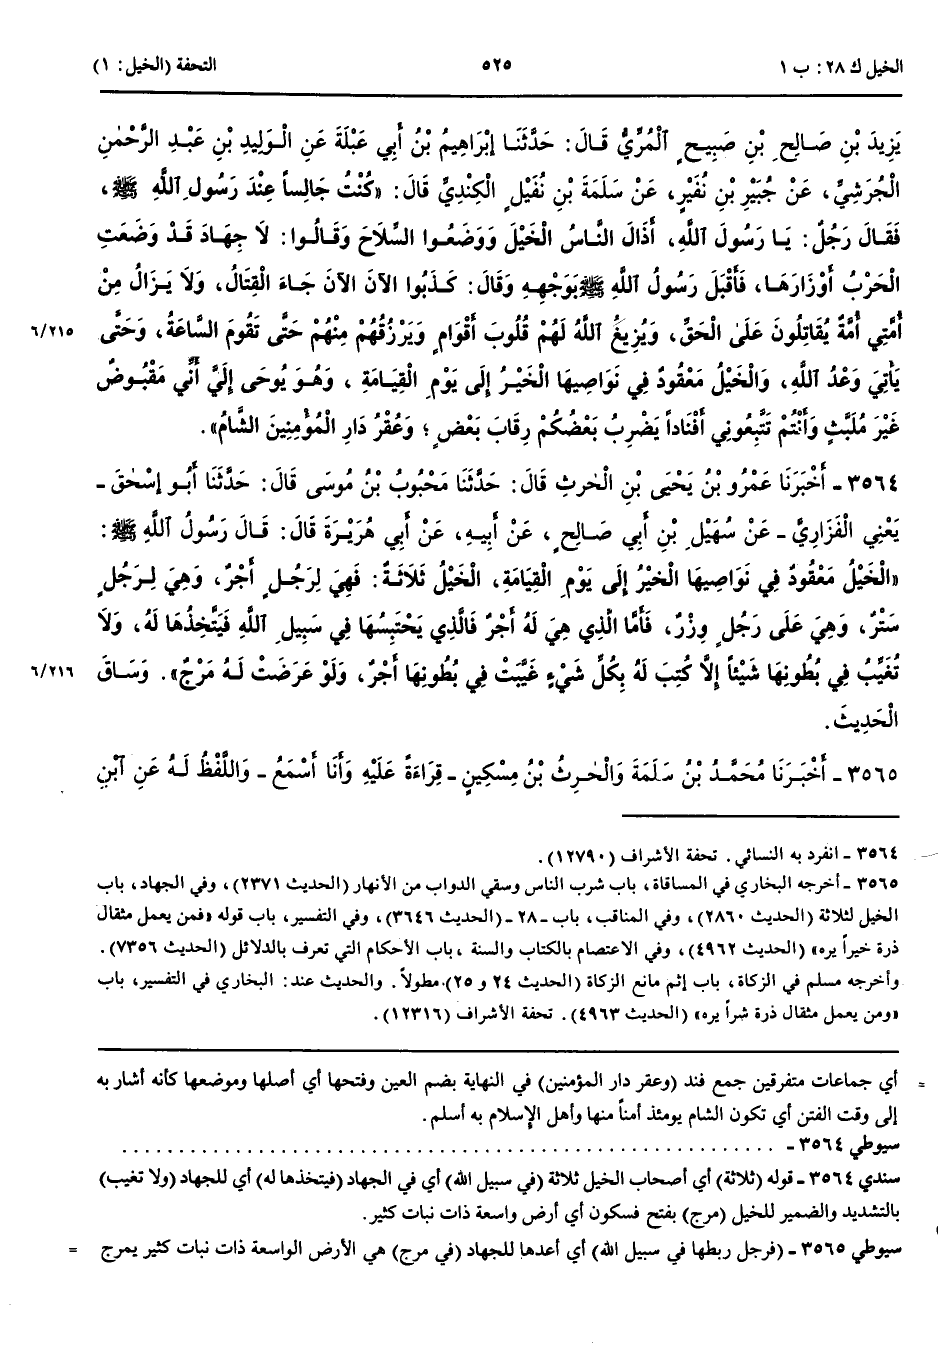 الخيل ك ٢٨: ب ١ ٥٢٥ التحفة (الخيل: ١)
يَزِيدَ بْنِ صَالِحِ بْنِ صَبِيحٍ الْمُرِّيُّ قَالَ: حَدَّثَنَا إِبْرَاهِيمُ بْنُ أَبِي عَبْلَةَ عَنِ الْوَلِيدِ بْنِ عَبْدِ الرَّحْمٰنِ
الْجُرَشِيِّ، عَنْ جُبَيْرِ بْنِ نُفَيْرٍ، عَنْ سَلَمَةَ بْنِ نُفَيْلٍ الْكِنْدِيِّ قَالَ: «كُنْتُ جَالِساً عِنْدَ رَسُولِ اللَّهِ ﷺ،
فَقَالَ رَجُلٌ: يَا رَسُولَ اللَّهِ، أَذَالَ النَّاسُ الْخَيْلَ وَوَضَعُوا السِّلَاحَ وَقَالُوا: لَا جِهَادَ قَدْ وَضَعَتِ
الْحَرْبُ أَوْزَارَهَا، فَأَقْبَلَ رَسُولُ اللَّهِ ﷺ بِوَجْهِهِ وَقَالَ: كَذَبُوا الآنَ الآنَ جَاءَ الْقِتَالُ، وَلَا يَزَالُ مِنْ
أُمَّتِي أُمَّةٌ يُقَاتِلُونَ عَلَى الْحَقِّ، وَيُزِيغُ اللَّهُ لَهُمْ قُلُوبَ أَقْوَامٍ وَيَرْزُقُهُمْ مِنْهُمْ حَتَّى تَقُومَ السَّاعَةُ، وَحَتَّى ٦/٢١٥
يَأْتِيَ وَعْدُ اللَّهِ، وَالْخَيْلُ مَعْقُودٌ فِي نَوَاصِيهَا الْخَيْرُ إِلَى يَوْمِ الْقِيَامَةِ، وَهُوَ يُوحَى إِلَيَّ أَنِّي مَقْبُوضٌ
غَيْرَ مُلَبَّثٍ وَأَنْتُمْ تَتَّبِعُونِي أَفْنَاداً يَضْرِبُ بَعْضُكُمْ رِقَابَ بَعْضٍ؛ وَعُقْرُ دَارِ الْمُؤْمِنِينَ الشَّامُ».
٣٥٦٤ - أَخْبَرَنَا عَمْرُو بْنُ يَحْيَى بْنِ الْحٰرِثِ قَالَ: حَدَّثَنَا مَحْبُوبُ بْنُ مُوسَى قَالَ: حَدَّثَنَا أَبُو إِسْحٰقَ -
يَعْنِي الْفَزَارِيَّ - عَنْ سُهَيْلِ بْنِ أَبِي صَالِحٍ، عَنْ أَبِيهِ، عَنْ أَبِي هُرَيْرَةَ قَالَ: قَالَ رَسُولُ اللَّهِ ﷺ:
«الْخَيْلُ مَعْقُودٌ فِي نَوَاصِيهَا الْخَيْرُ إِلَى يَوْمِ الْقِيَامَةِ، الْخَيْلُ ثَلَاثَةٌ: فَهِيَ لِرَجُلٍ أَجْرٌ، وَهِيَ لِرَجُلٍ
سَتْرٌ، وَهِيَ عَلَى رَجُلٍ وِزْرٌ، فَأَمَّا الَّذِي هِيَ لَهُ أَجْرٌ فَالَّذِي يَحْتَبِسُهَا فِي سَبِيلِ اللَّهِ فَيَتَّخِذُهَا لَهُ، وَلَا
تُغَيِّبُ فِي بُطُونِهَا شَيْئاً إِلَّا كُتِبَ لَهُ بِكُلِّ شَيْءٍ غَيَّبَتْ فِي بُطُونِهَا أَجْرٌ، وَلَوْ عَرَضَتْ لَهُ مَرْجٌ». وَسَاقَ ٦/٢١٦
الْحَدِيثَ.
٣٥٦٥ - أَخْبَرَنَا مُحَمَّدُ بْنُ سَلَمَةَ وَالْحٰرِثُ بْنُ مِسْكِينٍ - قِرَاءَةً عَلَيْهِ وَأَنَا أَسْمَعُ - وَاللَّفْظُ لَهُ عَنِ ابْنِ
٣٥٦٤ - انفرد به النسائي. تحفة الأشراف (١٢٧٩٠).
٣٥٦٥ - أخرجه البخاري في المساقاة، باب شرب الناس وسقي الدواب من الأنهار (الحديث ٢٣٧١)، وفي الجهاد، باب
الخيل لثلاثة (الحديث ٢٨٦٠)، وفي المناقب، باب - ٢٨ - (الحديث ٣٦٤٦)، وفي التفسير، باب قوله «فمن يعمل مثقال
ذرة خيراً يره» (الحديث ٤٩٦٢)، وفي الاعتصام بالكتاب والسنة، باب الأحكام التي تعرف بالدلائل (الحديث ٧٣٥٦).
وأخرجه مسلم في الزكاة، باب إثم مانع الزكاة (الحديث ٢٤ و ٢٥). مطولاً. والحديث عند: البخاري في التفسير، باب
«ومن يعمل مثقال ذرة شراً يره» (الحديث ٤٩٦٣). تحفة الأشراف (١٢٣١٦).
= أي جماعات متفرقين جمع فند (وعقر دار المؤمنين) في النهاية بضم العين وفتحها أي أصلها وموضعها كأنه أشار به
إلى وقت الفتن أي تكون الشام يومئذ أمناً منها وأهل الإسلام به أسلم.
سيوطي ٣٥٦٤ - . . . . . . . . . . . . . . . . . . . . . . . . . . . . . .
سندي ٣٥٦٤ - قوله (ثلاثة) أي أصحاب الخيل ثلاثة (في سبيل الله) أي في الجهاد (فيتخذها له) أي للجهاد (ولا تغيب)
بالتشديد والضمير للخيل (مرج) بفتح فسكون أي أرض واسعة ذات نبات كثير.
سيوطي ٣٥٦٥ - (فرجل ربطها في سبيل الله) أي أعدها للجهاد (في مرج) هي الأرض الواسعة ذات نبات كثير يمرج =